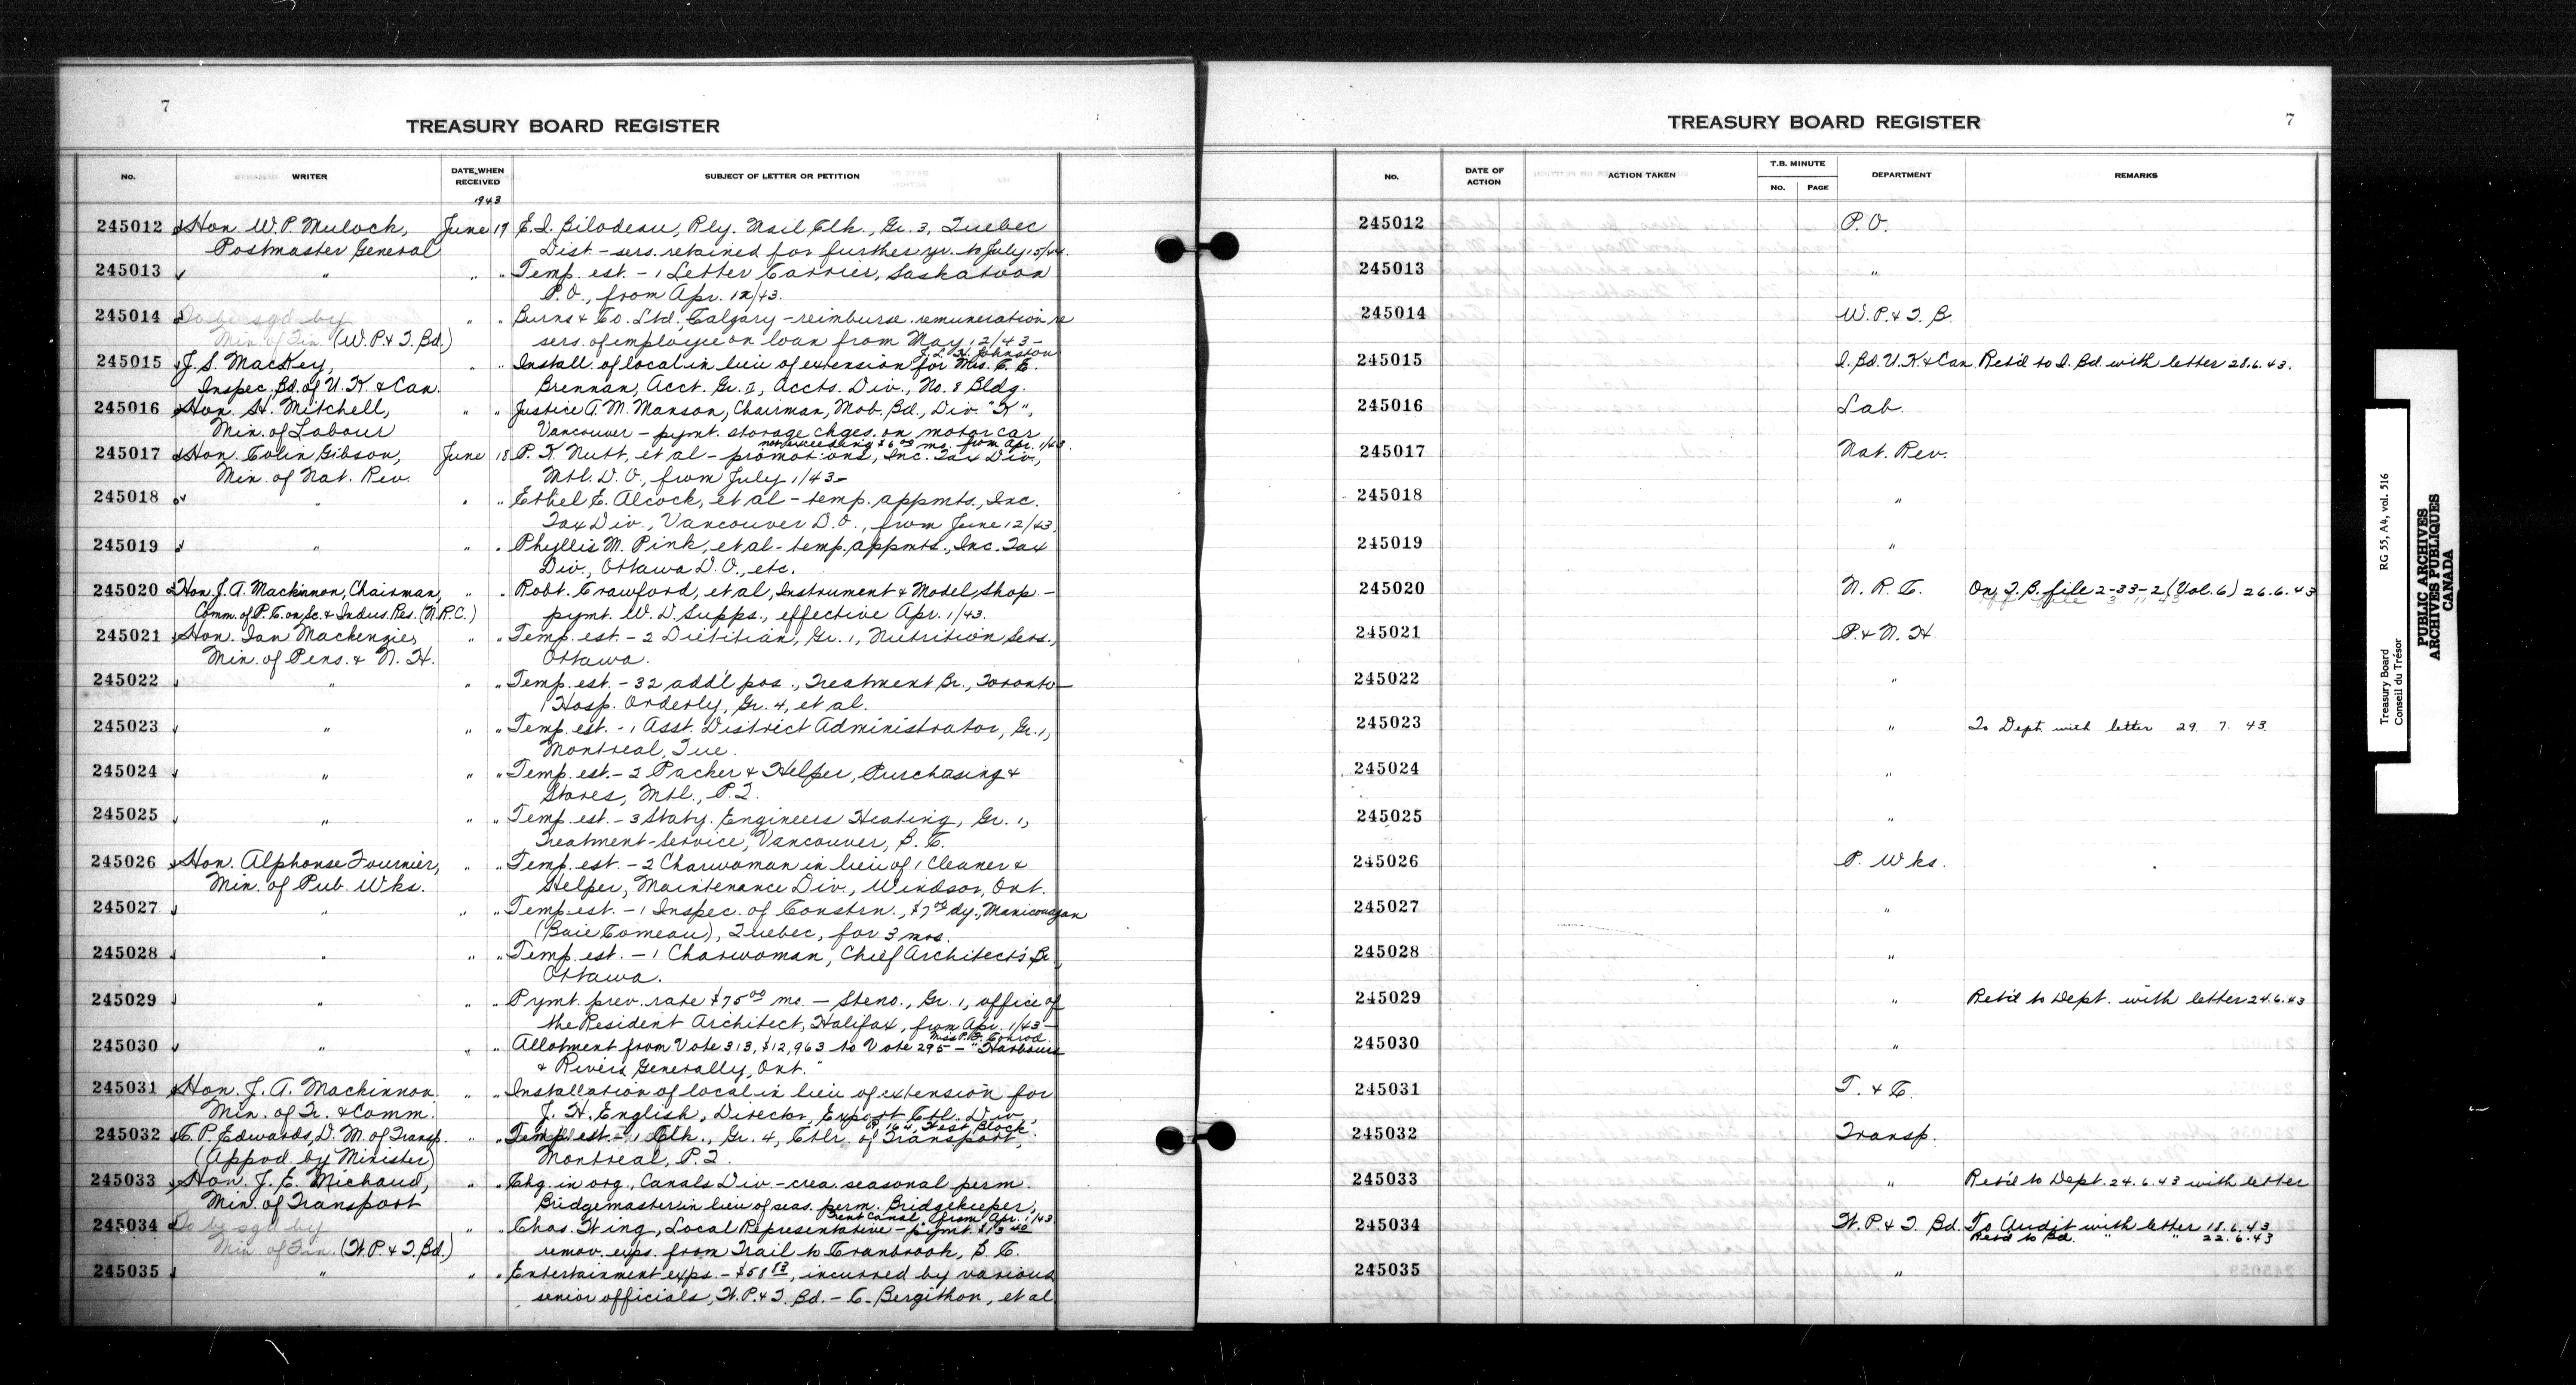 7
TREASURY BOARD REGISTER
No. WRITER DATE WHEN RECEIVED SUBJECT OF LETTER OR PETITION
1943
245012 Hon. W. P. Mulock, June 17 E. I. Bilodeau, Rly. Mail Clk., Gr. 3, Quebec
Postmaster General Dist. - sers. retained for further yr. to July 15/44.
245013 " " " Temp. est. - 1 Letter Carrier, Saskatoon
P.O., from Apr. 12/43.
245014 To be sgd by " " Burns & Co. Ltd., Calgary - reimburse. remuneration re
Min. of Fin. (W.P. & T. Bd.) sers. of employee on loan from May 12/43 -
J. L. H. Johnston
245015 J. S. MacKey, " " Install. of local in lieu of extension for Mrs. C. E.
Inspec. Bd. of U. K. & Can. Brennan, Acct. Gr. 1, Accts. Div., No. 8 Bldg.
245016 Hon. H. Mitchell, " " Justice A. M. Manson, Chairman, Mob. Bd., Div. "K",
Min. of Labour Vancouver - pymt. storage chges. on motor car
not exceeding $6.00 mo. from Apr. 1/43.
245017 Hon. Colin Gibson, June 18 P. K. Nutt, et al - promotions, Inc. Tax Div.,
Min. of Nat. Rev. Mtl. D. O., from July 1/43 -
245018 " " " Ethel E. Alcock, et al - temp. appmts., Inc.
Tax Div., Vancouver D.O., from June 12/43.
245019 " " " Phyllis M. Pink, et al - temp. appmts., Inc. Tax
Div., Ottawa D.O., etc.
245020 Hon. J. A. Mackinnon, Chairman, " " Robt. Crawford, et al, Instrument & Model Shop -
Comm. of P. C. on Sc. & Indus. Res. (N.R.C.) pymt. W. D. Supps., effective Apr. 1/43.
245021 Hon. Ian Mackenzie, " " Temp. est. - 2 Dietitian, Gr. 1, Nutrition Sers.,
Min. of Pens. & N. H. Ottawa.
245022 " " " Temp. est. - 32 add'l pos., Treatment Br., Toronto -
1 Hosp. Orderly, Gr. 4, et al.
245023 " " " Temp. est. - 1 Asst. District Administrator, Gr. 1,
Montreal, Que.
245024 " " " Temp. est. - 2 Packer & Helper, Purchasing &
Stores, Mtl., P.Q.
245025 " " " Temp. est. - 3 Staty. Engineers Heating, Gr. 1,
Treatment Service, Vancouver, B. C.
245026 Hon. Alphonse Fournier, " " Temp. est. - 2 Charwoman in lieu of 1 Cleaner &
Min. of Pub. Wks. Helper, Maintenance Div., Windsor, Ont.
245027 " " " Temp. est. - 1 Inspec. of Constrn., $7.00 dy., Manicouagan
(Baie Comeau), Quebec, for 3 mos.
245028 " " " Temp. est. - 1 Charwoman, Chief Architect's Br.
Ottawa.
245029 " " " Pymt. prev. rate $75.00 mo. - Steno., Gr. 1, office of
the Resident Architect, Halifax, from Apr. 1/43 -
Miss P. B. Conrod.
245030 " " " Allotment from Vote 313, $12,963 to Vote 295 - "Harbours
& Rivers Generally, Ont."
245031 Hon. J. A. Mackinnon. " " Installation of local in lieu of extension for
Min. of Tr. & Comm. J. H. English, Director, Export Ctl. Div.,
West Block.
245032 C. P. Edwards, D. M. of Transp. " " Temp. est. - 1 Clk., Gr. 4, Ctlr. of Transport,
(Appvd. by Minister) Montreal, P.Q.
245033 Hon. J. E. Michaud, " " Chg. in org., Canals Div. - crea. seasonal perm.
Min. of Transport Bridgemaster in lieu of seas. perm. Bridgekeeper,
Trent Canal, from Apr. 1/43.
245034 To be sgd by " " Chas. Wing, Local Representative - pymt. $13.40
Min. of Fin. (W.P. & T. Bd.) remov. exps. from Trail to Cranbrook, B. C.
245035 " " " Entertainment exps. - $58.83, incurred by various
senior officials, W.P. & T. Bd. - C. Bergithon, et al
TREASURY BOARD REGISTER
7
No. DATE OF ACTION ACTION TAKEN T.B. MINUTE No. PAGE DEPARTMENT REMARKS
245012 P.O.
245013 "
245014 W.P. & T. B.
245015 I. Bd. U. K. & Can Ret'd to I. Bd. with letter 28.6.43.
245016 Lab.
245017 Nat. Rev.
245018 "
245019 "
245020 N. R. C. On T. B. file 2-33-2 (Vol. 6) 26.6.43
245021 P. & N. H.
245022 "
245023 " To Dept. with letter 29. 7. 43.
245024 "
245025 "
245026 P. Wks.
245027 "
245028 "
245029 " Ret'd to Dept. with letter 24.6.43
245030 "
245031 T. & C.
245032 Transp.
245033 " Ret'd to Dept. 24.6.43 with letter
245034 W.P. & T. Bd. To Audit with letter 18.6.43
Ret'd to Bd. " " 22.6.43
245035 "
Treasury Board RG 55, A4, vol. 516
Conseil du Trésor
PUBLIC ARCHIVES
ARCHIVES PUBLIQUES
CANADA